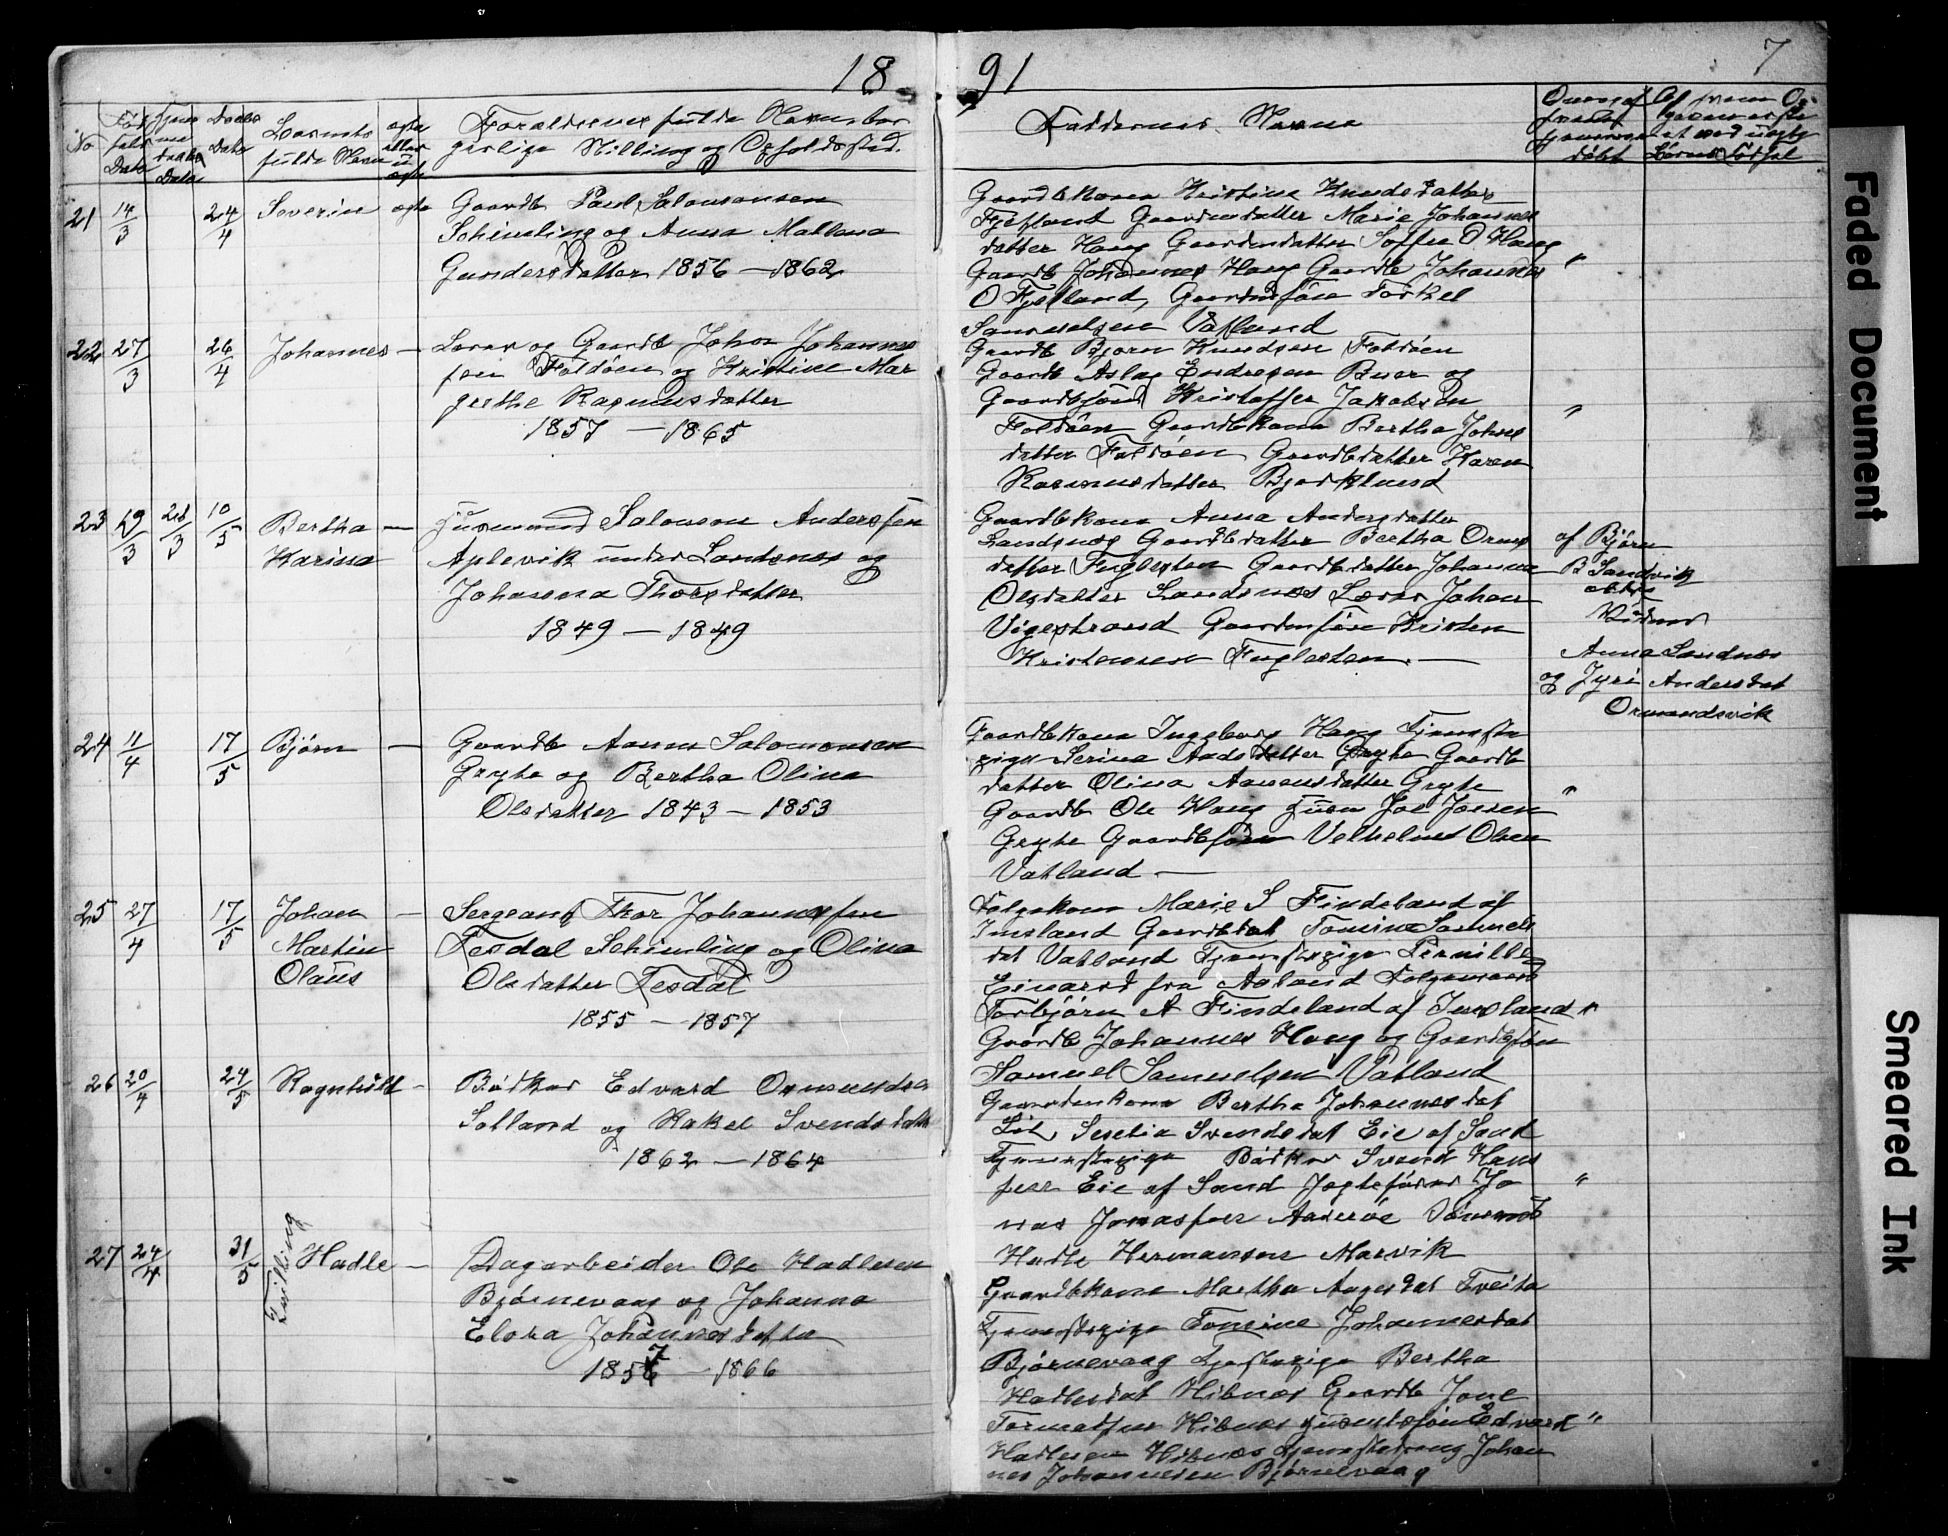 18 91
7
No
Fød
sels
Dato
Hjem
me
døbte
Dato
Daabs
Dato
Barnets
fulde Navn
ægte
eller
u
ægte
Forældrenes fulde Navn, bor
gerlige Stilling og Opholdssted.
Faddernes Navne
21 14/3 24/4 Severin ægte
Gaardb Paul Salomonsen
Schimling og Anna Mallena
Gundersdatter 1856 – 1862
Gaardbkona Kristina Knudsdatter
Fjetland Gaardmdatter Marie Johannes
datter Haug Gaardmdatter Soffie O Haug
Gaardb Johannes Haug Gaardb Johannes "
O Fjetland, Gaardmsøn Torkel
Samuelsen Vatland
22 27/3 26/4 Johannes –
Lærer og Gaardb Johan Johannes
sen Foldøen og Kristine Mar
grethe Rasmusdatter
1857 – 1865
Gaardb Bjørn Knudsen Foldøen
Gaardb Aslag Endresen Buer og
Gaardbsøn Kristoffer Jakobsen
Foldøen Gaardbkona Bertha Johns "
datter Foldøen Gaardbdatter Karen
Rasmusdatter Bjerklund
23 19/3 28/3 10/5 Bertha –
Karina
Husmand Salomon Anderssen
Aplevik under Landsnes og
Johanna Thorsdatter
1849 – 1849
Gaardbkona Anna Andersdatter
Landsnes Gaardbdatter Bertha Orms
datter Fuglesten Gaardbdatter Johanna
Olsdatter Landsnes Lærer Johan
Vigestrand Gaardmsøn Kristen
Kristensen Fuglesten. –
af Bjørn
B Sandvik
Vidner
Anna Landnes
og Jyri Andersdat
Ormundsvik
24 11/4 17/5 Bjørn –
Gaardb Aanen Salomonsen
Gryte og Bertha Olina
Olsdatter 1843 – 1853
Gaardbkona Ingeborg Haug Tjenste
pige Serina Aadsdatter Gryte Gaardb
datter Olina Aanensdatter Gryte
Gaardb Ole Haug Husm Joe Joesen "
Gryte Gaardbsøn Velhelmt Olsen
Vatland –
25 27/4 17/5 Johan –
Martin
Olaus
Sergeant Thor Johannessen
Tesdal Schimling og Olina
Olsdatter Tesdal
1855 – 1857
Folgekona Marie S Findeland af
Imsland Gaardbdat Tomine Samuels
dat Vatland Tjenstepige Pernille
Einarsd fra Aaland Folgemand
Torbjørn A Findeland af Imsland "
Gaardb Johannes Haug og Gaardbsøn
Samuel Samuelsen Vatland
26 20/4 24/5 Ragnhild –
Bødker Edvard Ormundsen
Solland og Rakel Svendsdatt
1862 – 1864
Gaardmkona Bertha Johannesdat
Serelia Svendsdat Eie af Sand
Tjenstepige Bødker Svend Hans
sen Eie af Sand Jagtefører Jo "
nas Jonassen Aaserøe
Hadle Hermansen Marvik
27 24/4 31/5 Tvilling Hadle –
Dagarbeider Ole Hadlesen
Bjørnevaag og Johanna
Elora Johannesdatter
1857 – 1866
Gaardbkona Martha Aagesdat Tveita
Tjenstepige Tomine Johannesdat
Bjørnevaag Tjenstepige Bertha
Hadlesdat Hibnes Gaardb Jone
Tormodsen Hibnes Husmdsøn Edvard "
Hadlesen Hibnes Tjenstedreng Johan
nes Johannesen Bjørnevaag
Faded Document
Smeared Ink